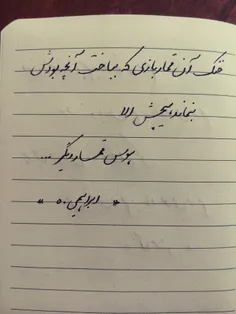 خنک آن قماربازی که بباخت آنچه بودش
بنماند هیچش !!!
هوس قمار دیگر ...
* ابراهیمی ۵۰ *